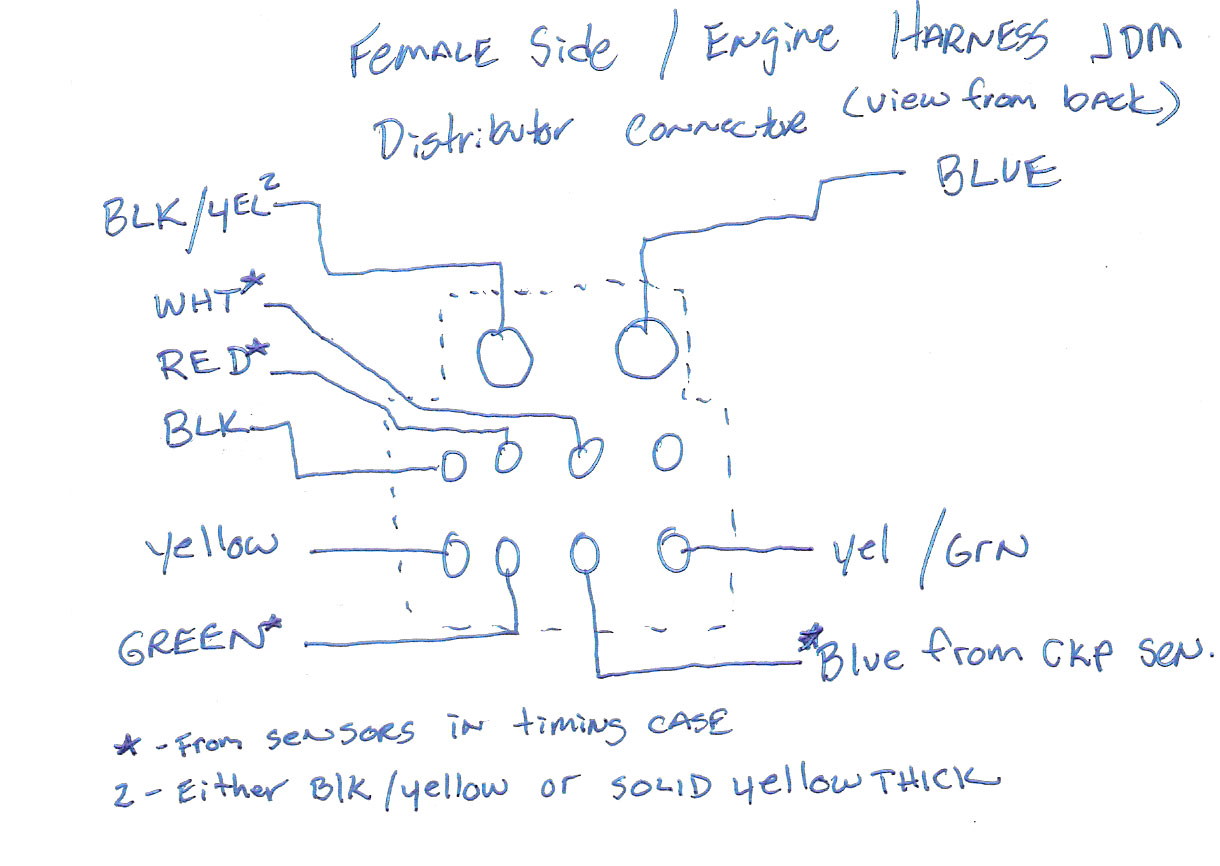 FEMALE Side / ENgiNe HARNESS JDM
Distributor CONNectore (view from back)
BLUE
BLK/YEL²
WHT*
RED*
BLK
yellow
yel /GrN
GREEN*
*Blue from CKP SEN.
* - From SENSORS iN timiNg CASE
2 - Either BlK/yellow or SOLID yellow THICK